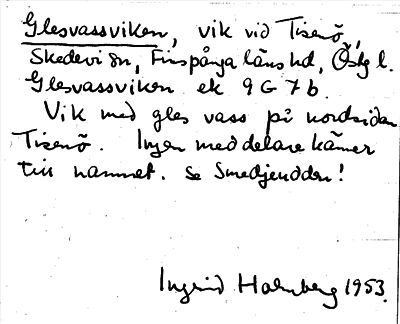 Glesvassviken, vik vid Tisenö,
Skedevi sn, Finspånga läns hd, Östg l.
Glesvassviken ek 9 G 7 b.
Vik med gles vass på nordsidan
Tisenö. Ingen meddelare känner
till namnet. Se Smedjeudden!
Ingrid Holmberg 1953.